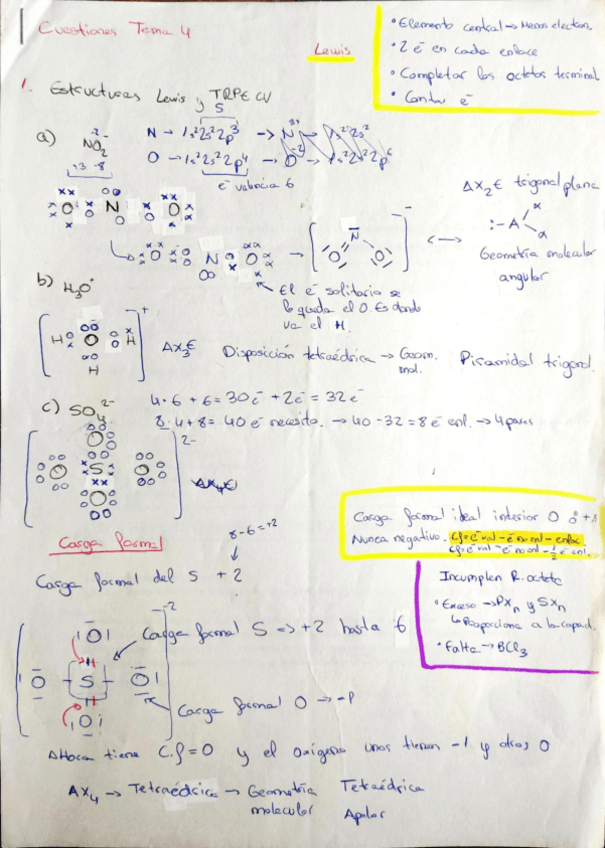 Cuestiones Tema 4
Lewis
• Elemento central → Menos electron.
• 2 e⁻ en cada enlace
• Completar los octetos terminal
• Contar e⁻
1. Estructuras Lewis y TRPECV
a) NO₂⁻
+3 -8
N → 1s² 2s² 2p³ → N³⁺ 1s² 2s²
5
O → 1s² 2s² 2p⁴ → O⁻² 1s² 2s² 2p⁶
e⁻ valencia 6
O N O
O N O → [O N O]⁻ ↔
AX₂E trigonal plana
:-A
Geometría molecular
angular
El e⁻ solitario se
lo queda el O. Es donde
va el H.
b) H₃O⁺
[H O H H]⁺
AX₃E Disposición tetraédrica → Geom. mol. Piramidal trigonal.
c) SO₄²⁻
4·6 + 6 = 30 e⁻ + 2e⁻ = 32 e⁻
8·4 + 8 = 40 e⁻ necesito. → 40 - 32 = 8 e⁻ enl. → 4 pares
[O O S O O]²⁻
AX₄
Carga formal ideal interior 0 o +1
Nunca negativo. Cf = e⁻ val - e⁻ no enl - enlac
Cf = e⁻ val - e⁻ no enl - ½ e⁻ enl.
Carga formal
8-6=+2
Carga formal del S + 2
Incumplen R. octeto
• Exceso → PXₙ y SXₙ
↳ Proporciona a la capaci.
• Falta → BCl₃
[O O S O O]⁻²
Carga formal S => +2 hasta 6
Carga formal O → -1
Ahora tiene C.f = 0 y el oxígeno unos tienen -1 y otros 0
AX₄ → Tetraédrica → Geometría molecular Tetraédrica
Apolar